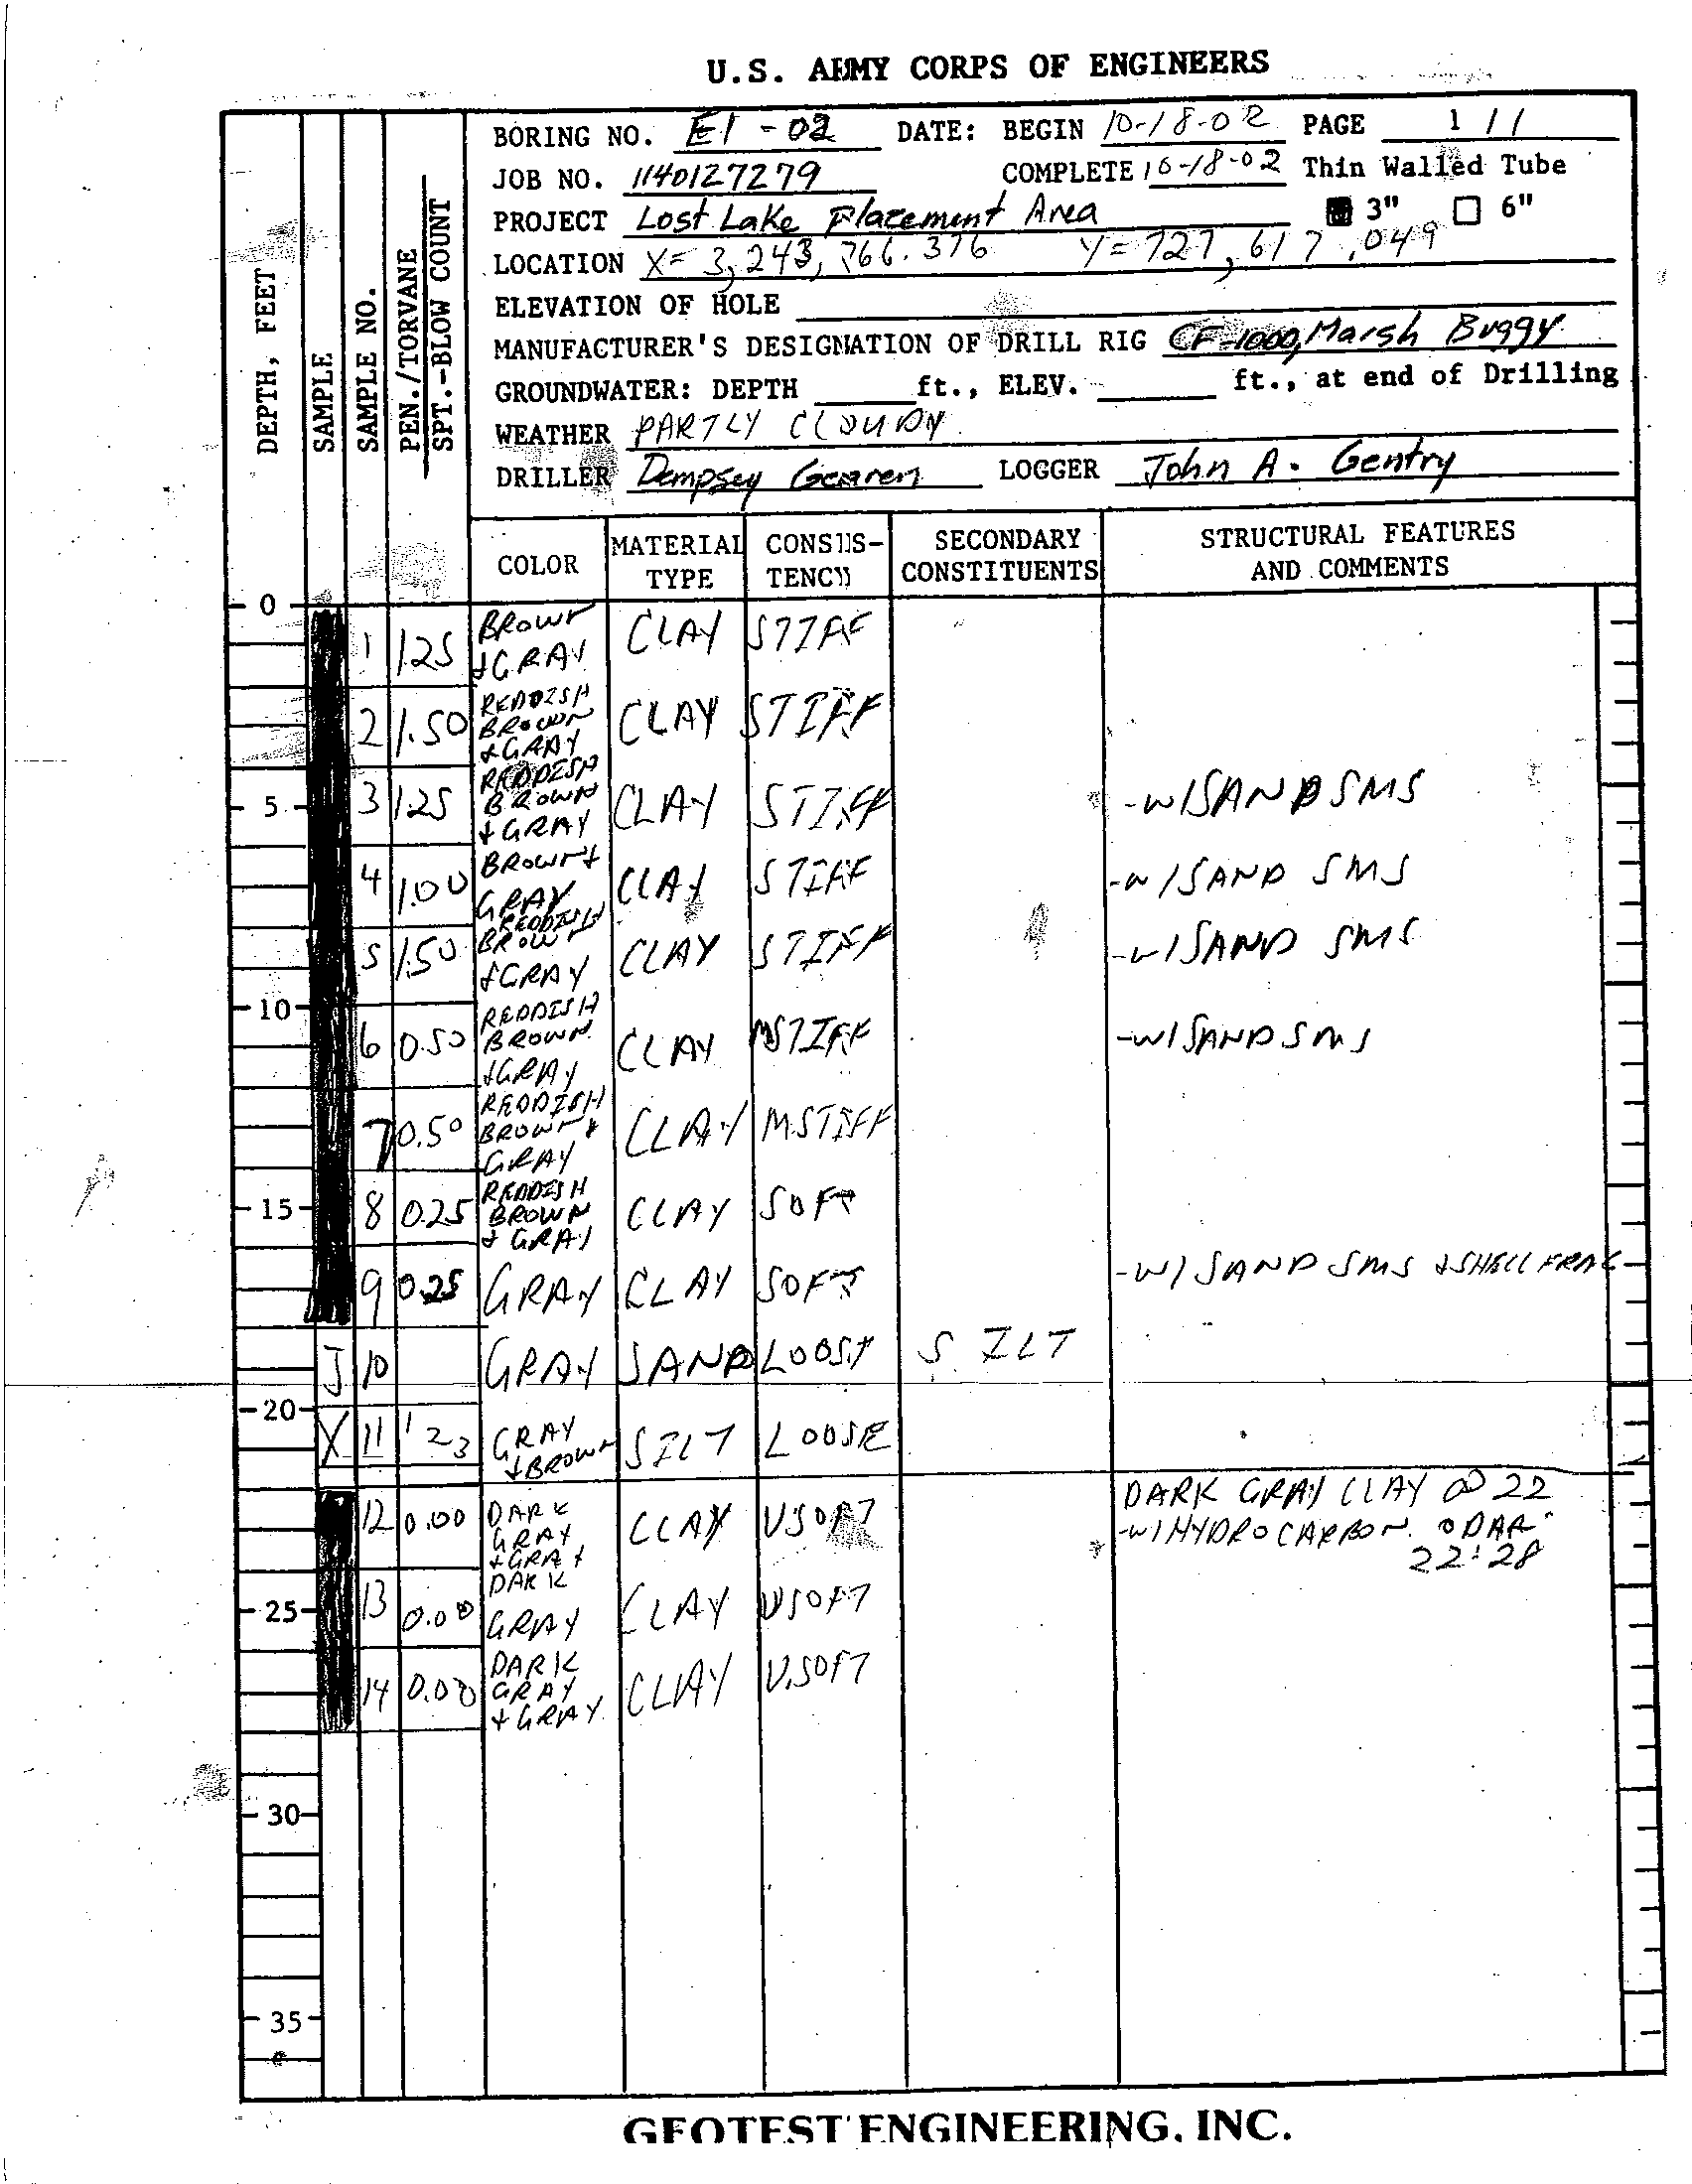 U.S. ARMY CORPS OF ENGINEERS
BORING NO. E1-02 DATE: BEGIN 10-18-02 PAGE 1 / 1
JOB NO. 1140127279 COMPLETE 10-18-02 Thin Walled Tube
PROJECT Lost Lake Placement Area 3" 6"
LOCATION X= 3,243,766.376 Y= 727,617.049
ELEVATION OF HOLE
MANUFACTURER'S DESIGNATION OF DRILL RIG CF-1000, Marsh Buggy
GROUNDWATER: DEPTH ft., ELEV. ft., at end of Drilling
WEATHER PARTLY CLOUDY
DRILLER Dempsey LOGGER John A. Gentry
DEPTH, FEET
SAMPLE
SAMPLE NO.
PEN./TORVANE
SPT.-BLOW COUNT
COLOR MATERIAL TYPE CONSISTENCY SECONDARY CONSTITUENTS STRUCTURAL FEATURES AND COMMENTS
0
1 1.25 BROWN + GRAY CLAY STIFF
2 1.50 REDDISH BROWN + GRAY CLAY STIFF
5 3 1.25 REDDISH BROWN + GRAY CLAY STIFF -W/SAND SMS
4 1.00 BROWN + GRAY CLAY STIFF -W/SAND SMS
5 1.50 REDDISH BROWN + GRAY CLAY STIFF -W/SAND SMS
10
6 0.50 REDDISH BROWN + GRAY CLAY MSTIFF -W/SAND SMS
7 0.50 REDDISH BROWN + GRAY CLAY M.STIFF
15 8 0.25 REDDISH BROWN + GRAY CLAY SOFT
9 0.25 GRAY CLAY SOFT -W/ SAND SMS + SHELL FRAG
J 10 GRAY SAND LOOSE SILT
20
X 11 1 2 3 GRAY + BROWN SILT LOOSE
12 0.00 DARK GRAY + GRAY CLAY VSOFT DARK GRAY CLAY @ 22
-W/HYDROCARBON ODAR
22:28
25 13 0.00 DARK GRAY CLAY VSOFT
14 0.00 DARK GRAY + GRAY CLAY V.SOFT
30
35
GEOTEST ENGINEERING, INC.